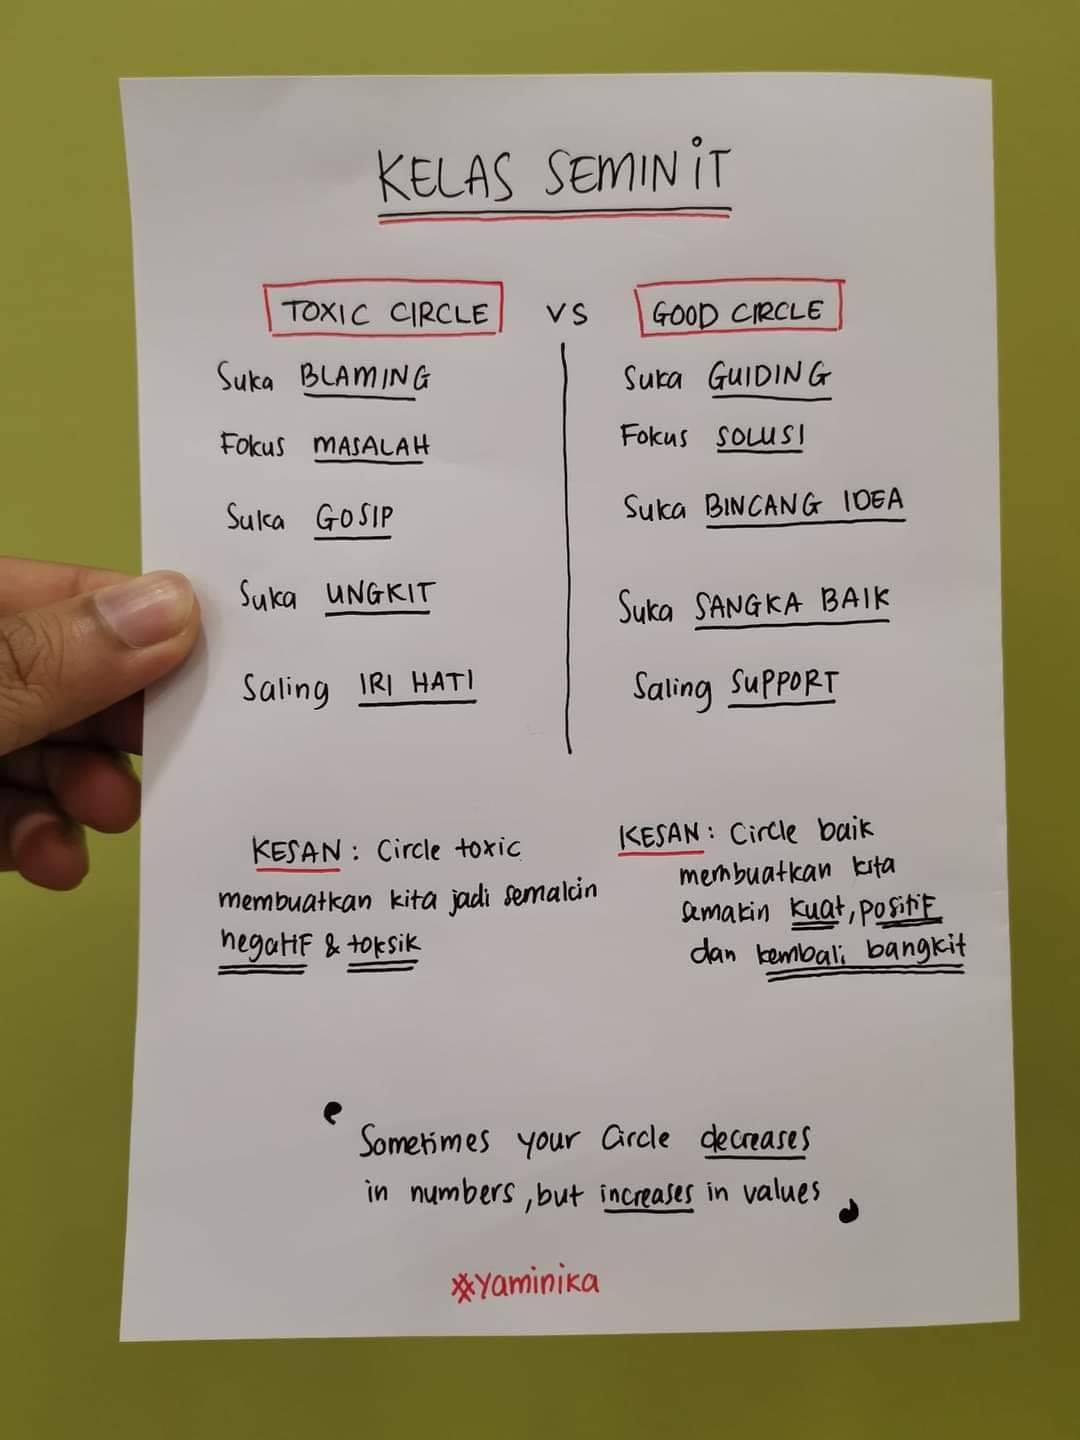 KELAS SEMINIT
TOXIC CIRCLE VS GOOD CIRCLE
Suka BLAMING
Fokus MASALAH
Suka GOSIP
Suka UNGKIT
Saling IRI HATI
Suka GUIDING
Fokus SOLUSI
Suka BINCANG IDEA
Suka SANGKA BAIK
Saling SUPPORT
KESAN: Circle toxic
membuatkan kita jadi semakin
negatif & toksik
KESAN: Circle baik
membuatkan kita
semakin kuat, positif
dan kembali bangkit
Sometimes your Circle decreases
in numbers, but increases in values
#yaminika